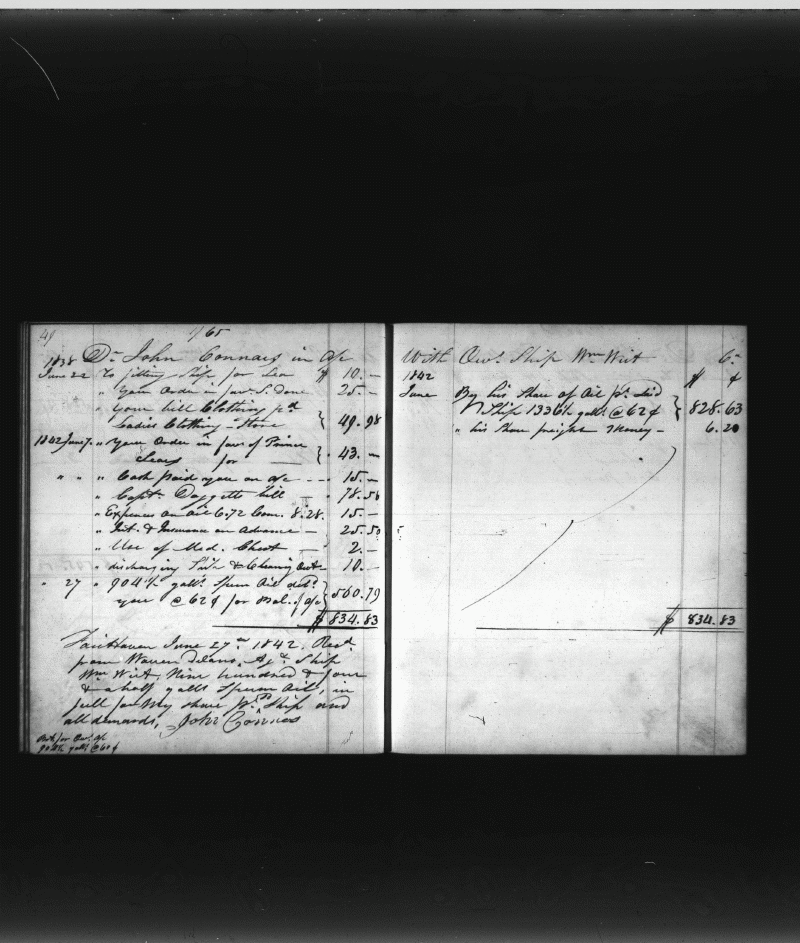 49
1/65
1838 Dr John Connars in a/c
June 22 To fitting Ship for Sea $ 10.—
" your Order in fav. S. Done 25.—
" your bill Clothing pr
Ladies Clothing Store } 49.98
1842 June 7 " your Order in fav. of Prince
Sears for — } 43.—
" " " Cash paid you on a/c - - 15.—
" Capt. Daggetts bill — 78.56
" Expenses on oil 6.72 Com. 8.28. 15.—
" Int. & Insurance on Advance — 25.50
" Use of Med. Chest — 2.—
" discharging Ship & Cleaning Out 10.—
" 27 " 904½ galls Sperm Oil deld
you @ 62¢ for Bal. of a/c } 560.79
$ 834.83
Fairhaven June 27th 1842. Recd
from Warren Delano, Agt Ship
Wm Wirt, Nine hundred & four
& a half galls Sperm Oil, in
full for My share pr Ship and
all demands, John Connos
904½ galls @ 62¢
With Own. Ship Wm Wirt Cr
1842 $ ¢
June By his Share of Oil pr Sd
Ship 1336½ galls @ 62¢ } 828.63
" his Share freight Money — 6.20
$ 834.83